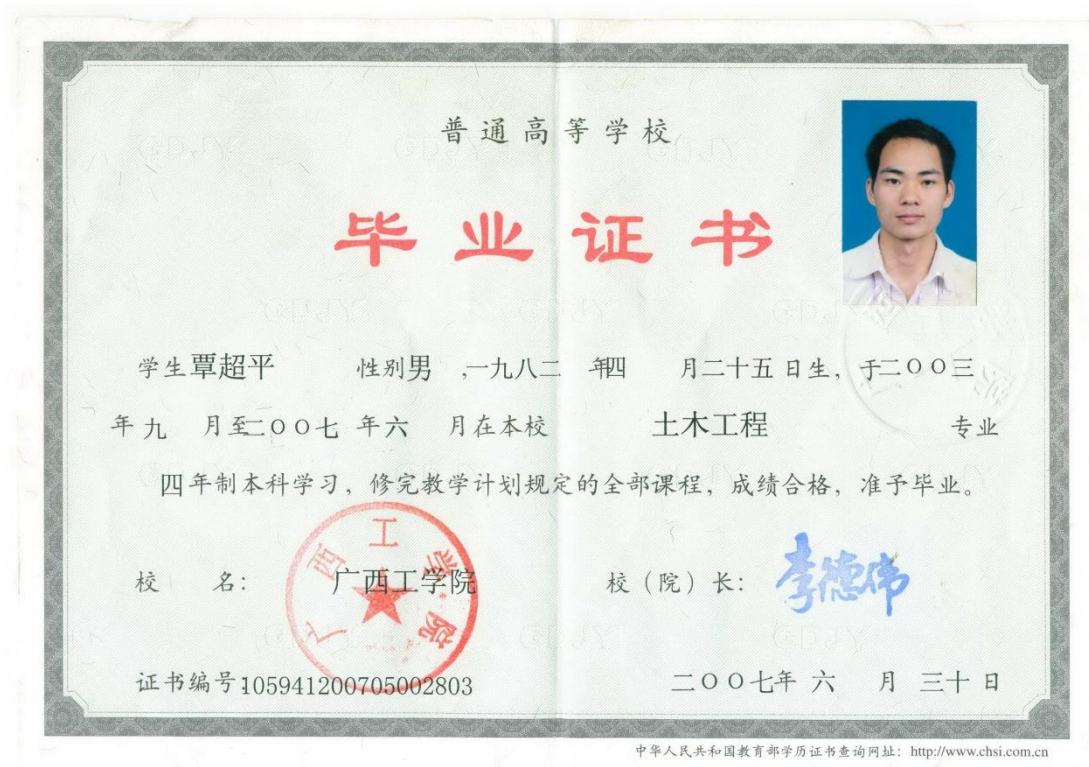 普通高等学校
毕业证书
学生覃超平 性别男 ,一九八二 年四 月二十五日生，于二〇〇三
年九 月至二〇〇七 年六 月在本校 土木工程 专业
四年制本科学习，修完教学计划规定的全部课程，成绩合格，准予毕业。
广西工学院
校 名： 广西工学院 校（院）长： 李德伟
证书编号:105941200705002803 二〇〇七年 六 月 三十 日
中华人民共和国教育部学历证书查询网址：http://www.chsi.com.cn